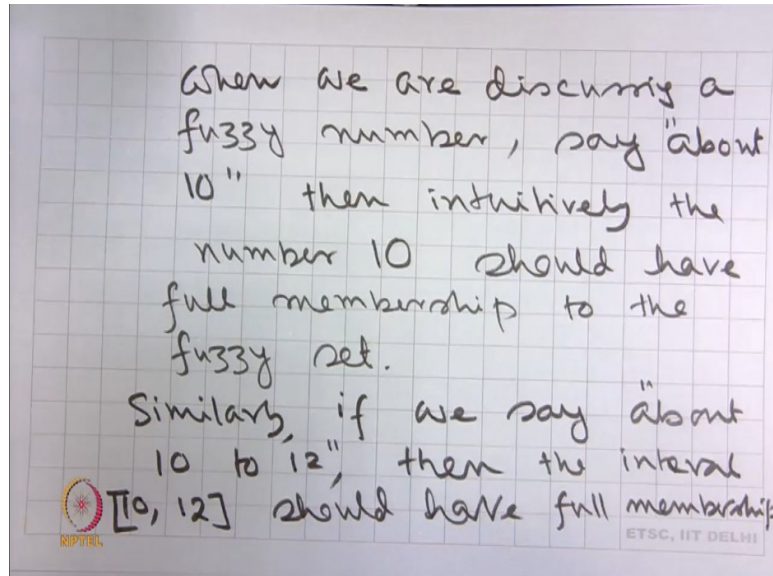 When we are discussing a
fuzzy number, say "about
10" then intuitively the
number 10 should have
full membership to the
fuzzy set.
Similarly, if we say "about
10 to 12", then the interval
[10, 12] should have full membership
NPTEL
ETSC, IIT DELHI